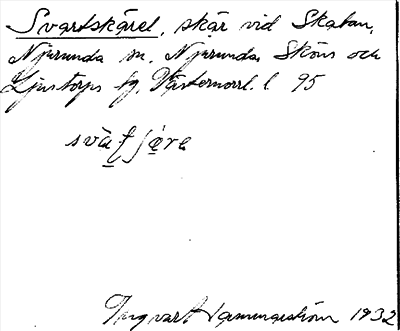 Svartskäret, skär vid Skatan,
Njurunda sn. Njurunda, Sköns och
Ljustorps tg. Västernorrl. l 95
Ingvar Hammarström 1932